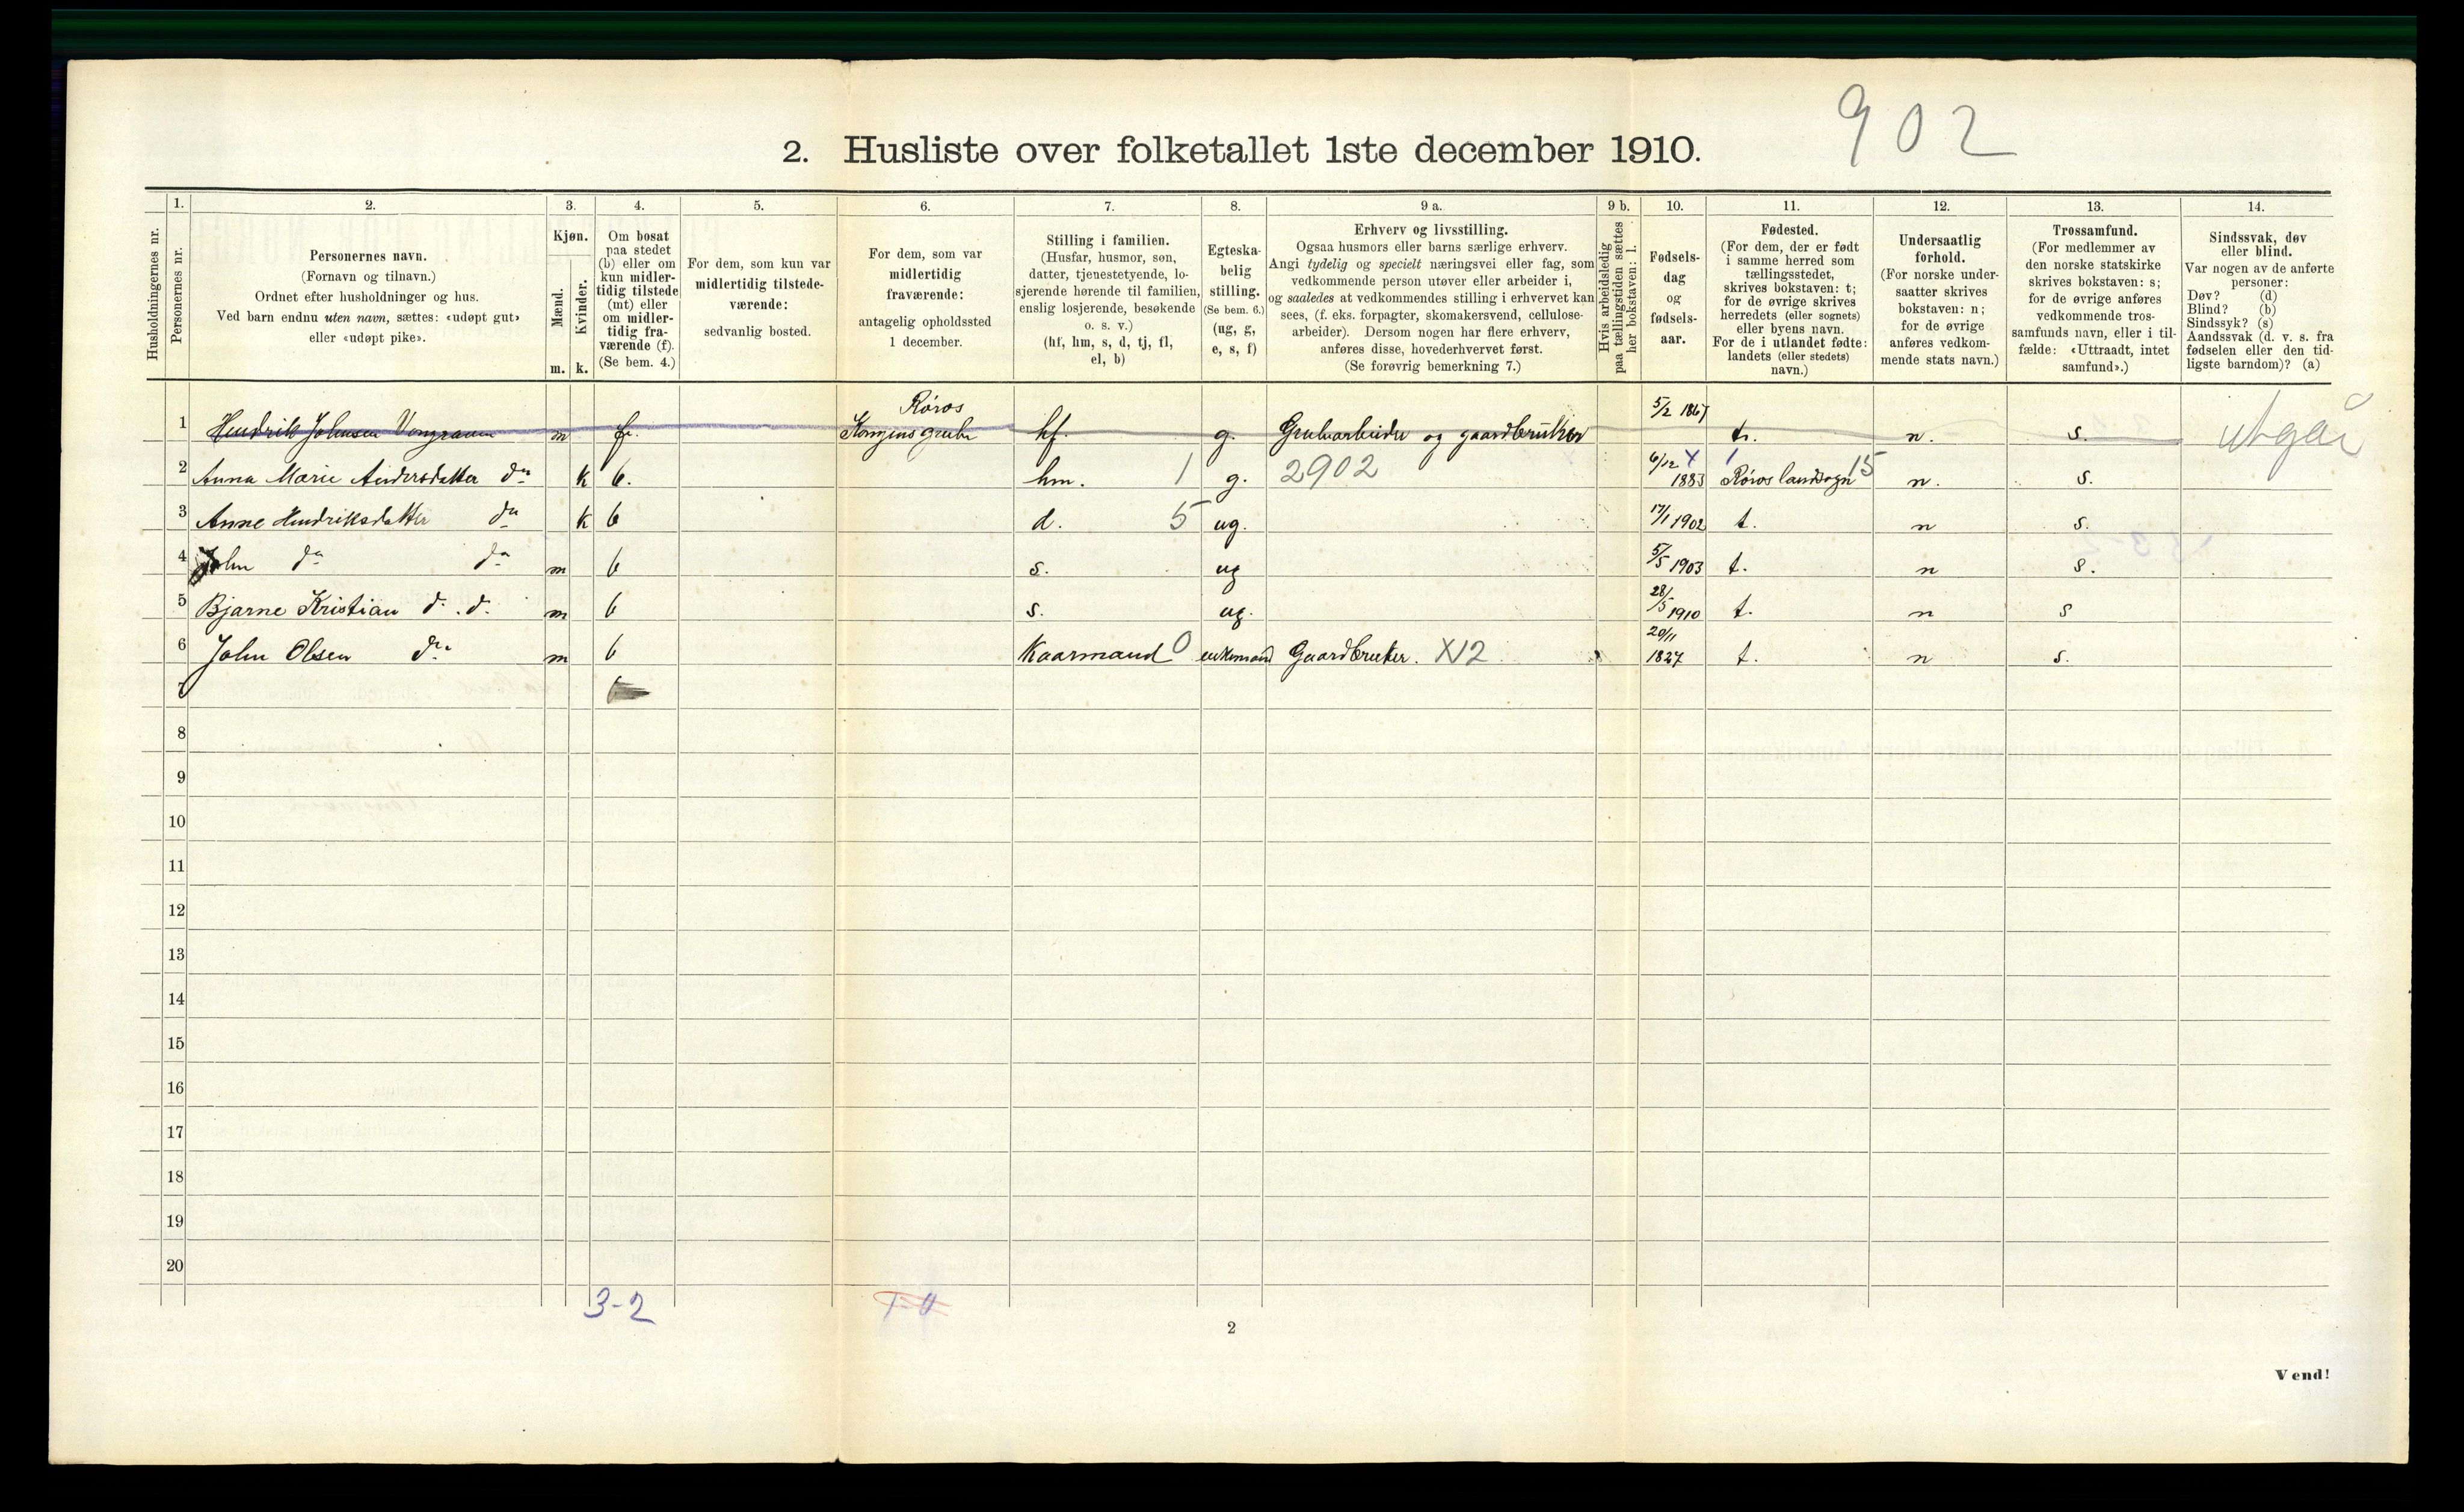 902
2. Husliste over folketallet 1ste december 1910.
Husholdningernes nr.
1.
Personernes nr.
2.
Personernes navn.
(Fornavn og tilnavn.)
Ordnet efter husholdninger og hus.
Ved barn endnu uten navn, sættes: «udøpt gut»
eller «udøpt pike».
3.
Kjøn.
Mænd.
Kvinder.
m. k.
4.
Om bosat
paa stedet
(b) eller om
kun midler-
tidig tilstede
(mt) eller
om midler-
tidig fra-
værende (f).
(Se bem. 4.)
5.
For dem, som kun var
midlertidig tilstede-
værende:
sedvanlig bosted.
6.
For dem, som var
midlertidig
fraværende:
antagelig opholdssted
1 december.
7.
Stilling i familien.
(Husfar, husmor, søn,
datter, tjenestetyende, lo-
sjerende hørende til familien,
enslig losjerende, besøkende
o. s. v.)
(hf, hm, s, d, tj, fl,
el, b)
8.
Egteska-
belig
stilling.
(Se bem. 6.)
(ug, g,
e, s, f)
9 a.
Erhverv og livsstilling.
Ogsaa husmors eller barns særlige erhverv.
Angi tydelig og specielt næringsvei eller fag, som
vedkommende person utøver eller arbeider i,
og saaledes at vedkommendes stilling i erhvervet kan
sees, (f. eks. forpagter, skomakersvend, cellulose-
arbeider). Dersom nogen har flere erhverv,
anføres disse, hovederhvervet først.
(Se forøvrig bemerkning 7.)
9 b.
Hvis arbeidsledig
paa tællingstiden sættes
her bokstaven: l.
10.
Fødsels-
dag
og
fødsels-
aar.
11.
Fødested.
(For dem, der er født
i samme herred som
tællingsstedet,
skrives bokstaven: t;
for de øvrige skrives
herredets (eller sognets)
eller byens navn.
For de i utlandet fødte:
landets (eller stedets)
navn.)
12.
Undersaatlig
forhold.
(For norske under-
saatter skrives
bokstaven: n;
for de øvrige
anføres vedkom-
mende stats navn.)
13.
Trossamfund.
(For medlemmer av
den norske statskirke
skrives bokstaven: s;
for de øvrige anføres
vedkommende tros-
samfunds navn, eller i til-
fælde: «Uttraadt, intet
samfund».)
14.
Sindssvak, døv
eller blind.
Var nogen av de anførte
personer:
Døv? (d)
Blind? (b)
Sindssyk? (s)
Aandssvak (d. v. s. fra
fødselen eller den tid-
ligste barndom)? (a)
1 Hendrik Johnsen m f. Røros Kongens grube hf. g. Grubearbeider og gaardbruker 5/2 1867 t. n. s. utgår
2 Anna Marie Andersdatter do k b. hm. 1 g. 2902 6/12 1883 Røros landsogn 15 n. s.
3 Anne Hendriksdatter do k b d. 5 ug. 17/1 1902 t. n s.
4 John do do m b s. ug 5/5 1903 t. n s.
5 Bjarne Kristian d. d. m b s. ug. 28/5 1910 t. n s
6 John Olsen do m b Kaarmand 0 enkemand Gaardbruker. X12 20/11 1827 t. n s.
7 b
8
9
10
11
12
13
14
15
16
17
18
19
20
3-2
2
Vend!